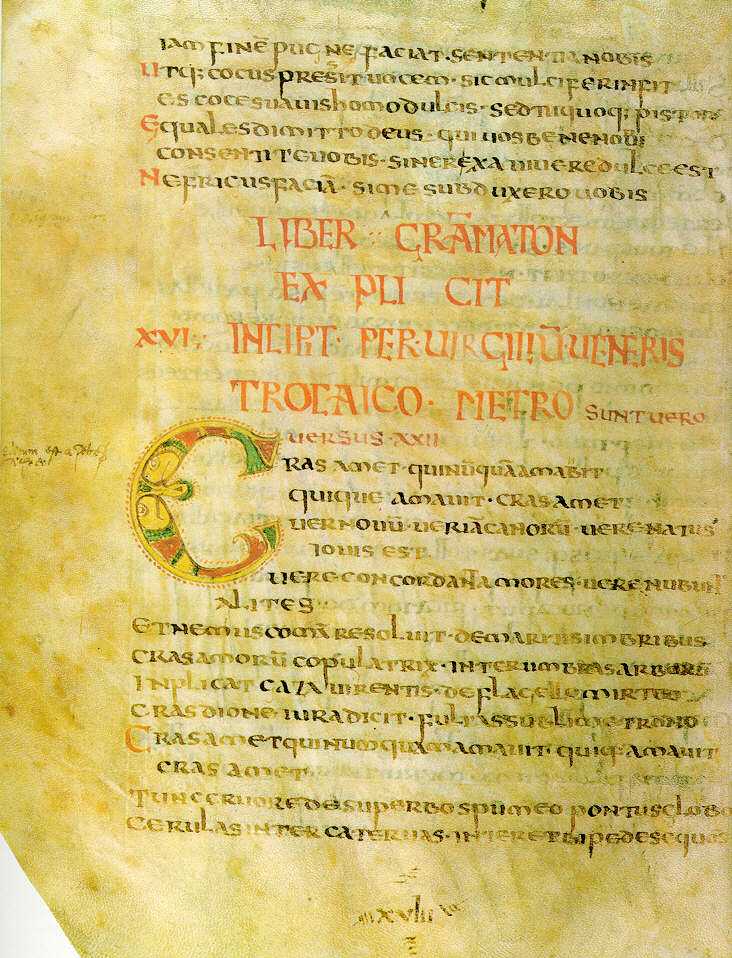 IAM FINĒ PUGNE FACIAT·SENTENTIA NOBIS
UTQ; COCUS PRESIT UOCEM·SIC MULCIFER INFIT
ES COCE SUAUIS HOMO DULCIS·SED TU QUOQ; PISTOR
EQUALES DIMITTO DEUS·QUI UOS BENE NOUI
CONSENTITE UOBIS·SINE REXA UIUERE DULCE EST
NE FRICUS FACIĀ·SI ME SUBDUXERO UOBIS
LIBER GRĀMATON
EX PLI CIT
XVI· INCIPIT· PER·UIRGILIŪ·UENERIS
TROCAICO· METRO SUNT UERO
UERSUS·XXII
CRAS AMET·QUI NŪQUĀ AMABIT
QUIQUE AMAUIT·CRAS AMET
UER NOUŪ·UER IĀ CANORŪ·UERE NATUS
IOUIS EST
UERE CONCORDANT AMORES·UERE NUBUNT
ALITES
ET NEMUS COMĀ RESOLUIT·DE MARITIS IMBRIBUS
CRAS AMORŪ COPULATRIX·INTER UMBRAS ARBORŪ
INPLICAT CAZA UIRENTIS·DE FLAGELLE MIRTEO
CRAS DIONE·IURA DICIT·FULTA SUBLIME TRONO
CRAS AMET QUI NUMQUAM AMAUIT·QUIQ; AMAUIT
CRAS AMET
TUNC CRUORE DE SUPERBO SPUMEO PONTUS GLOBO
CERULAS INTER CATERUAS·INTER ET BIPEDES EQUOS
XVIII